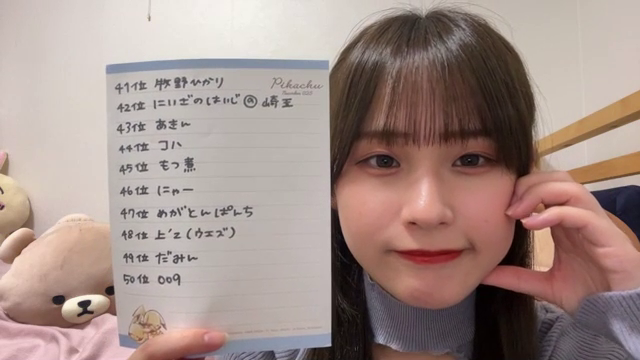 Pikachu
41位 牧野ひかり
42位 にいざのはいじ@崎玉
43位 あきん
44位 コハ
45位 もつ煮
46位 にゃー
47位 めがとんぱんち
48位 上'z(ウエズ)
49位 だみん
50位 009